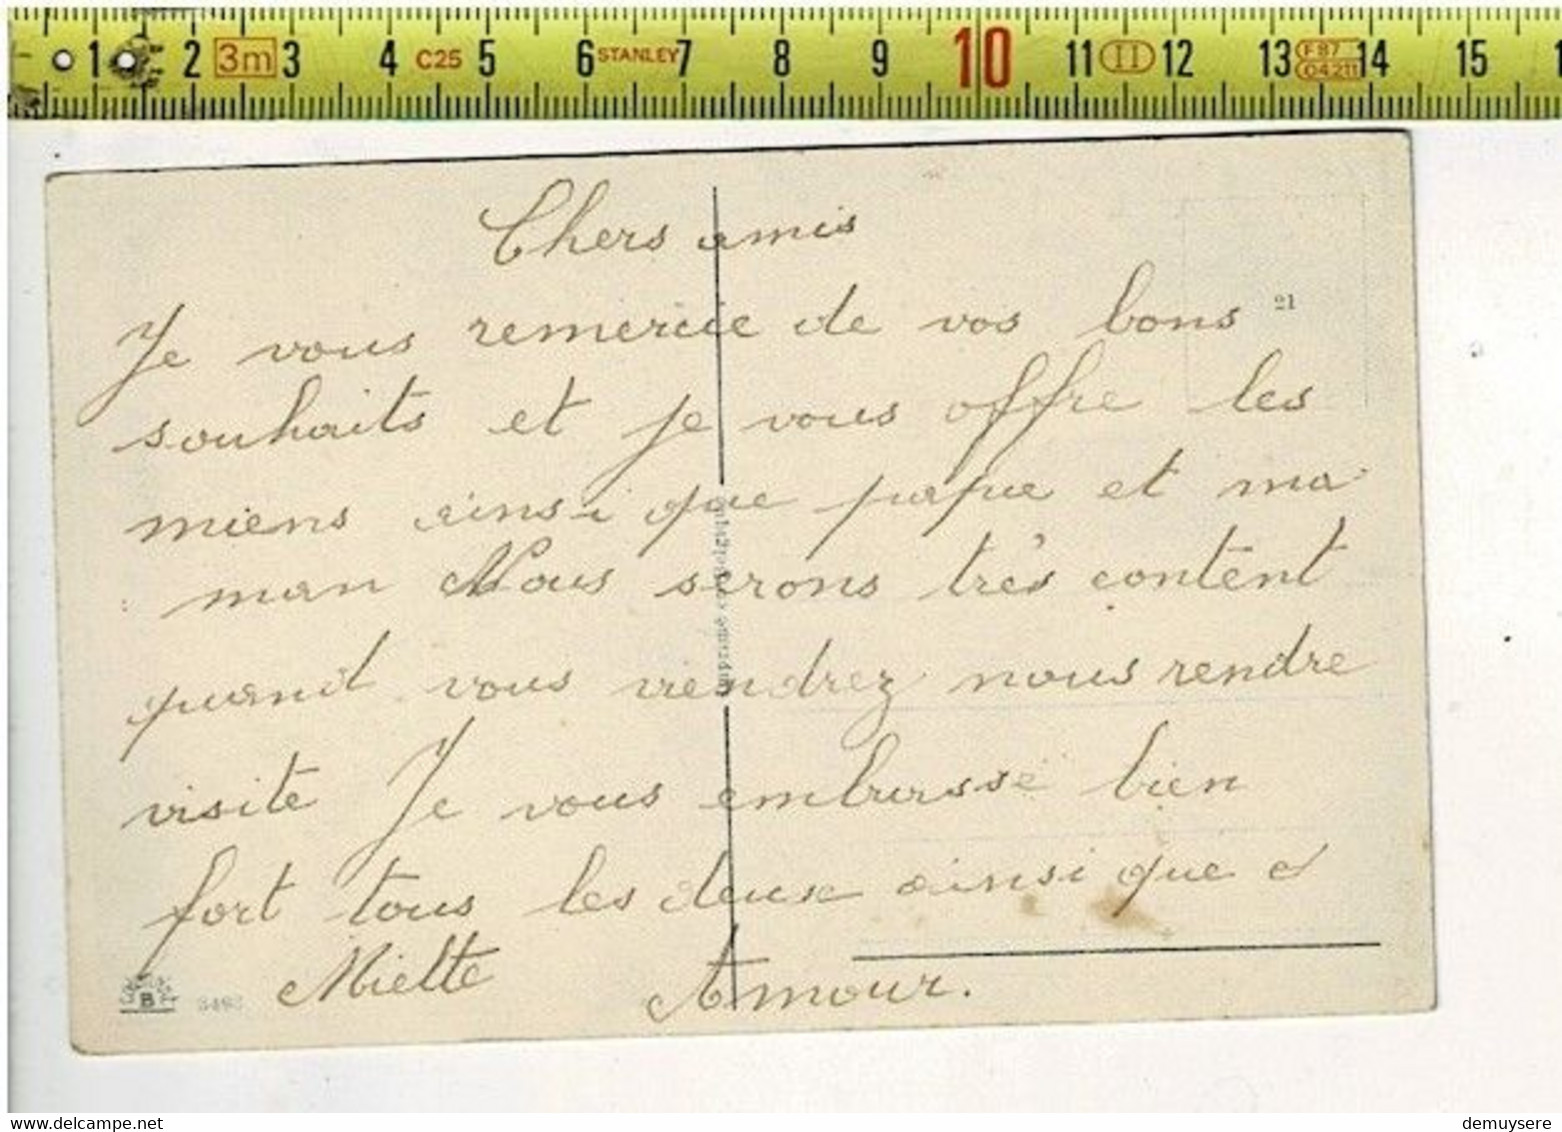 1 2 3m 3 4 C25 5 6 STANLEY 7 8 9 10 11 II 12 13 F 87 04211 14 15
Chers amis
21
Je vous remercie de vos bons
souhaits et je vous offre les
miens ainsi que papa et ma
man Nous serons très content
quand vous viendrez nous rendre
visite Je vous embrasse bien
fort tous les deux ainsi que
Mielte Amour.
B
demuysere